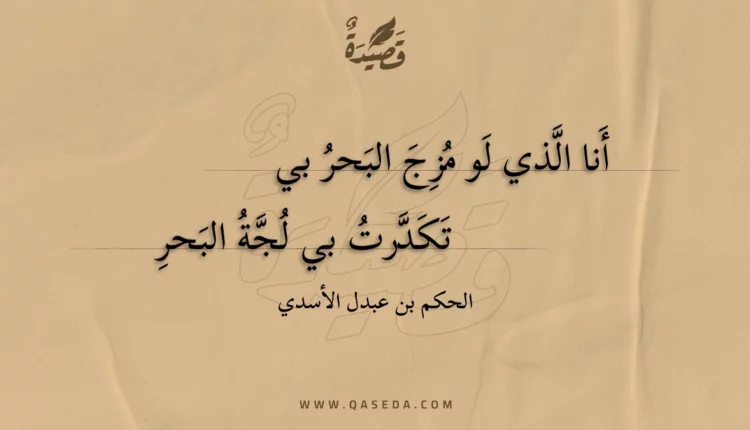 قَصِيْدَةٌ
أَنا الَّذي لَو مُزِجَ البَحرُ بي
تَكَدَّرتُ بي لُجَّةُ البَحرِ
الحكم بن عبدل الأسدي
WWW.QASEDA.COM